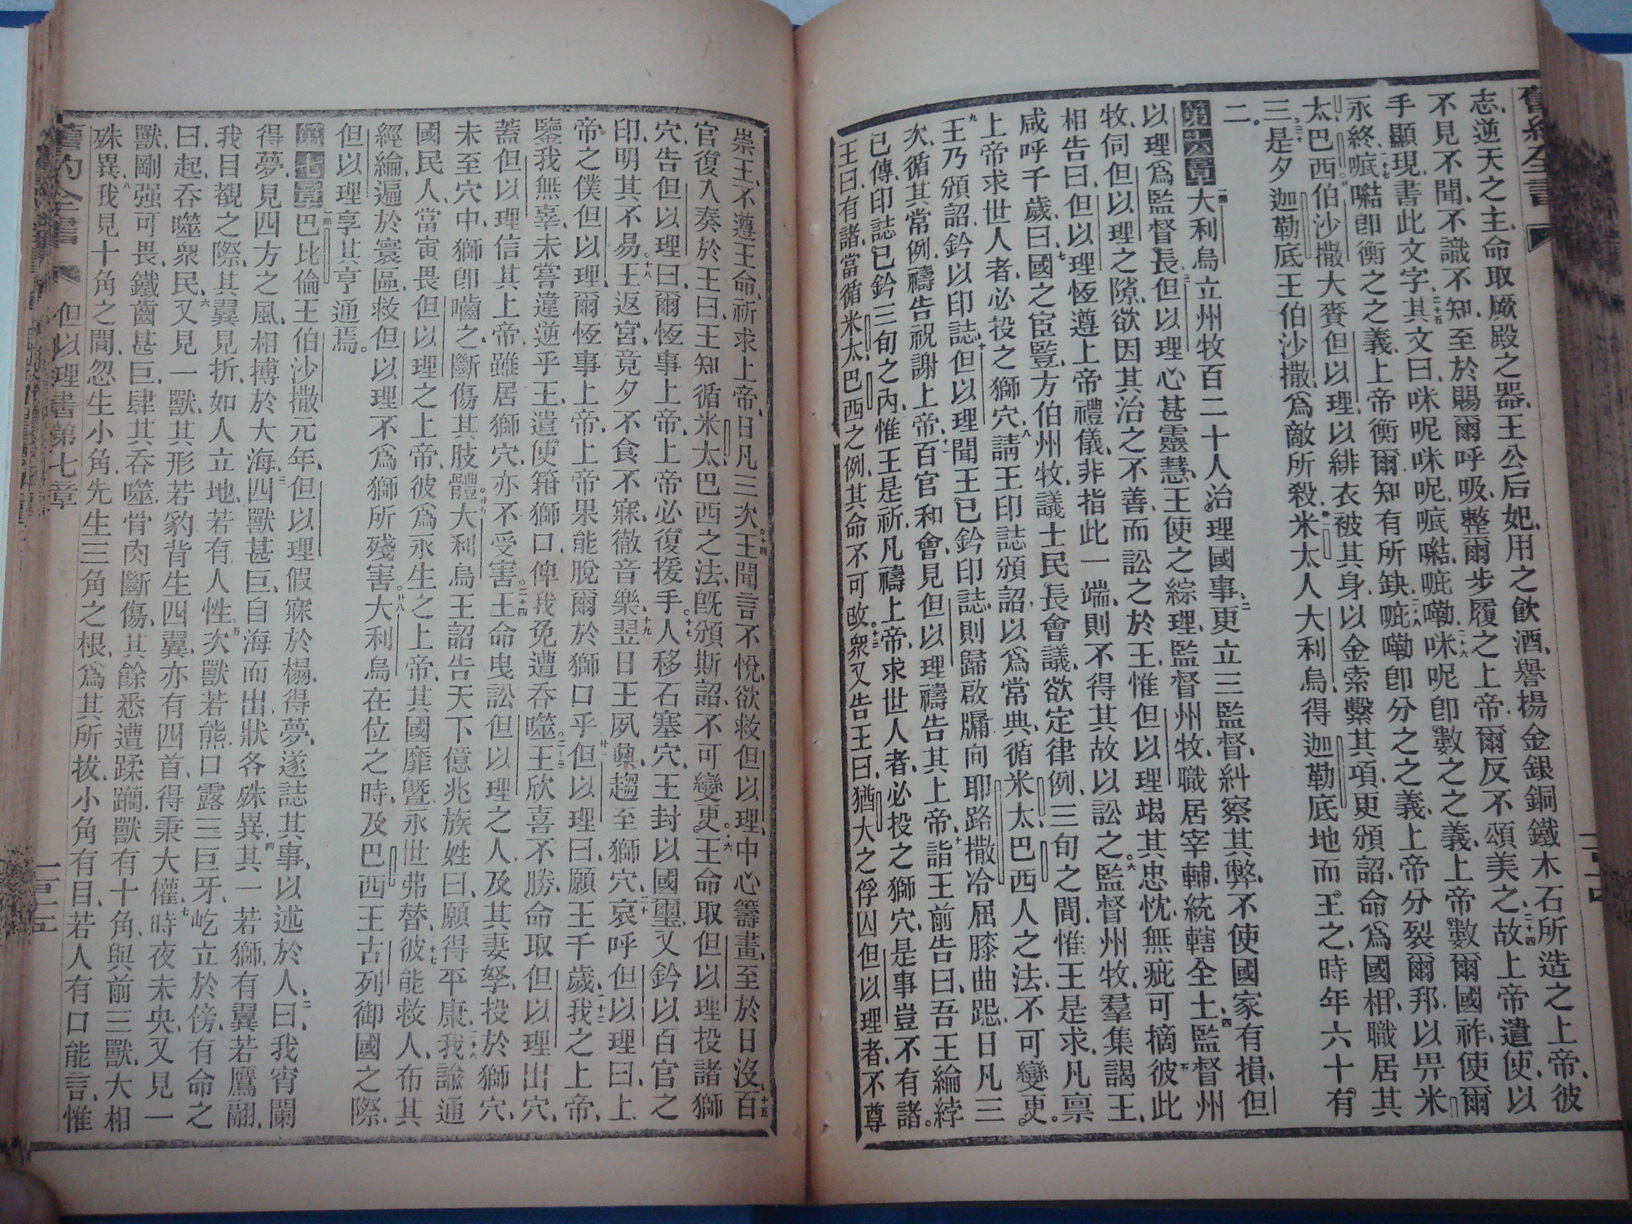 舊約全書
志逆天之主命取厥殿之器王公后妃用之飲酒譽揚金銀銅鐵木石所造之上帝彼
不見不聞不識不知至於賜爾呼吸整爾步履之上帝爾反不頌美之故上帝遣使以
手顯現書此文字其文曰咪呢咪呢嘞咪呢卽數之之義上帝數爾國祚使爾
永終卽衡之之義上帝衡爾知有所缺嘞卽分之之義上帝分裂爾邦以畀米
太巴西伯沙撒大賚但以理以緋衣被其身以金索繫其項更頒詔命爲國相職居其
三是夕迦勒底王伯沙撒爲敵所殺米太人大利烏得迦勒底地而王之時年六十有
二
第六章大利烏立州牧百二十人治理國事更立三監督糾察其弊不使國家有損但
以理爲監督長但以理心甚靈慧王使之綜理監督州牧職居宰輔統轄全土監督州
牧伺但以理之隙欲因其治之不善而訟之於王惟但以理竭其忠忱無疵可摘彼此
相告曰但以理恆遵上帝禮儀非指此一端則不得其故以訟之監督州牧羣集謁王
咸呼千歲曰國之宦豎方伯州牧議士民長會議欲定律例三旬之間惟王是求凡禀
上帝求世人者必投之獅穴請王印誌頒詔以爲常典循米太巴西人之法不可變更
王乃頒詔鈐以印誌但以理聞王已鈐印誌則歸啟牖向耶路撒冷屈膝曲跽日凡三
次循其常例禱告祝謝上帝百官和會見但以理禱告其上帝詣王前告曰吾王綸綍
已傳印誌已鈐三旬之內惟王是祈凡禱上帝求世人者必投之獅穴是事豈不有諸
王曰有諸當循米太巴西之例其命不可改衆又告王曰猶大之俘囚但以理者不尊
崇王不遵王命祈求上帝日凡三次王聞言不悅欲救但以理中心籌畫至於日沒百
官復入奏於王曰王知循米太巴西之法旣頒斯詔不可變更王命取但以理投諸獅
穴告但以理曰爾恆事上帝上帝必復援手人移石塞穴王封以國璽又鈐以百官之
印明其不易王返宮竟夕不食不寐徹音樂翌日王夙興趨至獅穴哀呼但以理曰上
帝之僕但以理爾恆事上帝上帝果能脫爾於獅口乎但以理曰願王千歲我之上帝
鑒我無辜未嘗違逆乎王遣使箝獅口俾我免遭吞噬王欣喜不勝命取但以理出穴
蓋但以理信其上帝雖居獅穴亦不受害王命曳訟但以理之人及其妻孥投於獅穴
未至穴中獅卽嚙之斷傷其肢體大利烏王詔告天下億兆族姓曰願得平康我諭通
國民人當寅畏但以理之上帝彼爲永生之上帝其國靡暨永世弗替彼能救人布其
經綸遍於寰區救但以理不爲獅所殘害大利烏在位之時及巴西王古列御國之際
但以理享其亨通焉
第七章巴比倫王伯沙撒元年但以理假寐於榻得夢遂誌其事以述於人曰我宵闌
得夢見四方之風相搏於大海四獸甚巨自海而出狀各殊異其一若獅有翼若鷹翩
我目觀之際其翼見折如人立地若有人性次獸若熊口露三巨牙屹立於傍有命之
曰起吞噬衆民又見一獸其形若豹背生四翼亦有四首得秉大權時夜未央又見一
獸剛强可畏鐵齒甚巨肆其吞噬骨肉斷傷其餘悉遭蹂躪獸有十角與前三獸大相
殊異我見十角之間忽生小角先生三角之根爲其所拔小角有目若人有口能言惟
舊約全書 但以理書第七章 一百二十五